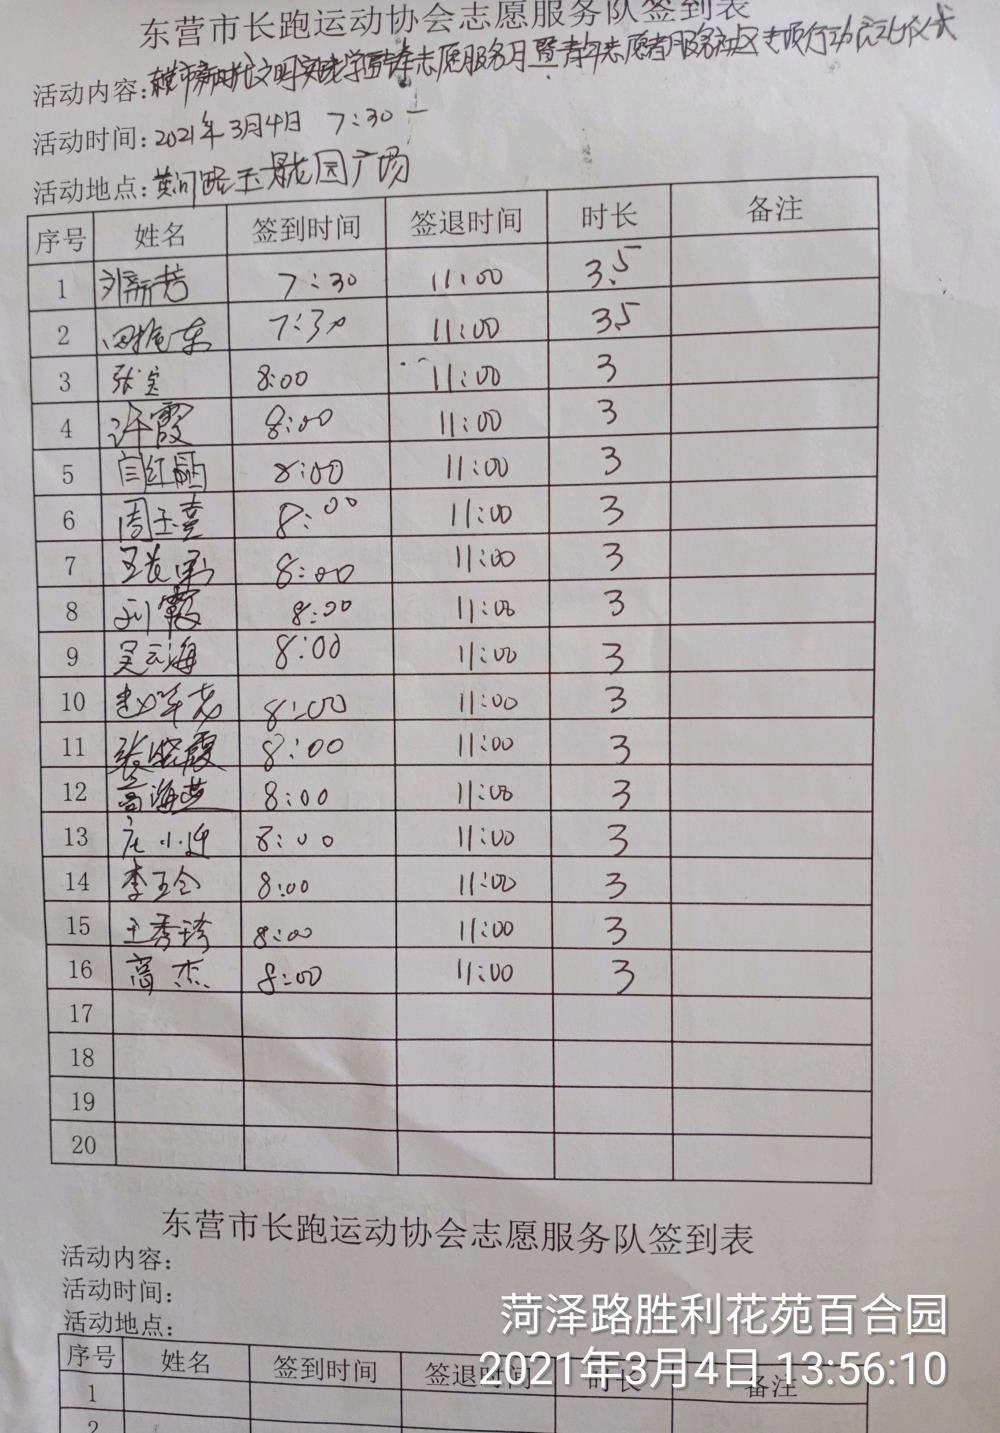 东营市长跑运动协会志愿服务队签到表
活动内容:东营市新时代文明实践学雷锋志愿服务月暨青年志愿者服务社区专项行动启动仪式
活动时间:2021年3月4日 7:30一
活动地点:黄河路玉景花园广场
序号 姓名 签到时间 签退时间 时长 备注
1 刘新芳 7:30 11:00 3.5
2 7:30 11:00 3.5
3 8:00 11:00 3
4 许霞 8:00 11:00 3
5 闫红丽 8:00 11:00 3
6 周玉青 8:00 11:00 3
7 8:00 11:00 3
8 刘霞 8:00 11:00 3
9 吴云海 8:00 11:00 3
10 8:00 11:00 3
11 张晓霞 8:00 11:00 3
12 高海燕 8:00 11:00 3
13 庄小迎 8:00 11:00 3
14 李玉令 8:00 11:00 3
15 王秀琦 8:00 11:00 3
16 高杰 8:00 11:00 3
17
18
19
20
东营市长跑运动协会志愿服务队签到表
活动内容:
活动时间:
活动地点:
序号 姓名 签到时间 签退时间 时长 备注
1
2
菏泽路胜利花苑百合园
2021年3月4日 13:56:10